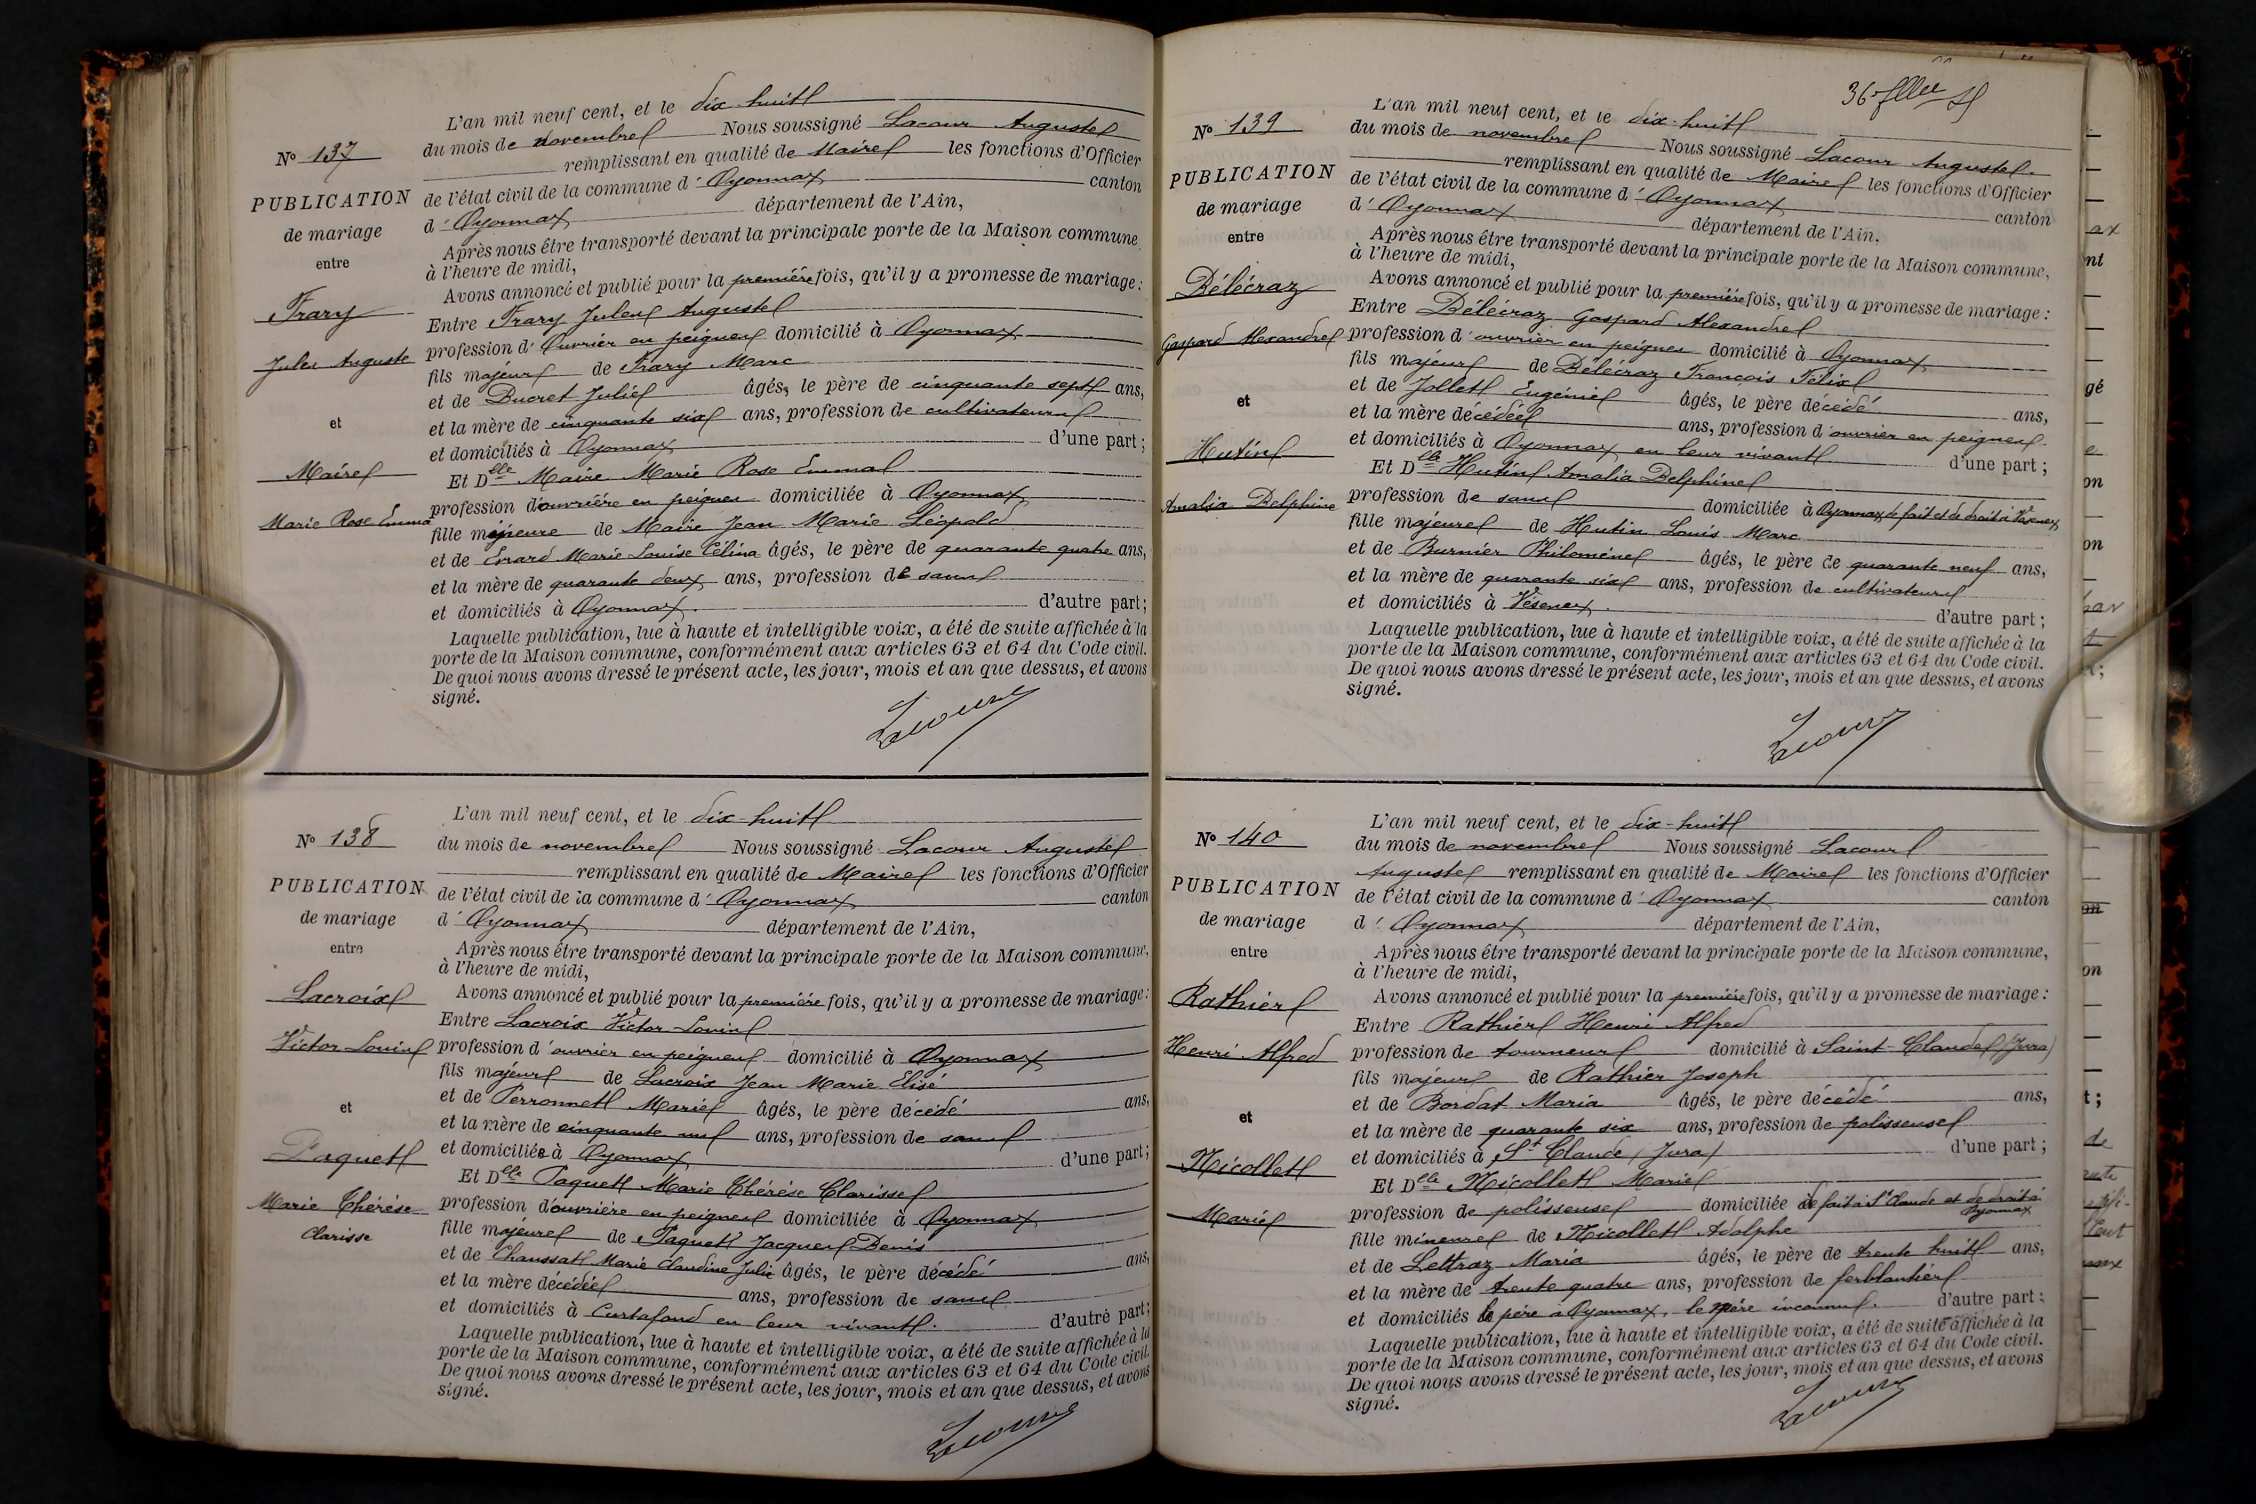 L'an mil neuf cent, et le dix-huit
Nº 137
du mois de novembre Nous soussigné Lacour Auguste
remplissant en qualité de Maire les fonctions d'Officier
PUBLICATION
de l'état civil de la commune d' Oyonnax canton
de mariage
d' Oyonnax département de l'Ain,
entre
Après nous être transporté devant la principale porte de la Maison commune
à l'heure de midi,
Avons annoncé et publié pour la première fois, qu'il y a promesse de mariage:
Frary
Entre Frary Jules Auguste
Jules Auguste
profession d' ouvrier en peignes domicilié à Oyonnax
fils majeur de Frary Marc
et de Ducret Julie âgés, le père de cinquante sept ans,
et
et la mère de cinquante six ans, profession de cultivateurs
et domiciliés à Oyonnax d'une part;
Maire
Et Delle Maire Marie Rose Emma
profession d'ouvrière en peignes domiciliée à Oyonnax
Marie Rose Emma
fille mineure de Maire Jean Marie Léopold
et de Evrard Marie Louise Célina âgés, le père de quarante quatre ans,
et la mère de quarante deux ans, profession de sans
et domiciliés à Oyonnax. d'autre part;
Laquelle publication, lue à haute et intelligible voix, a été de suite affichée à la
porte de la Maison commune, conformément aux articles 63 et 64 du Code civil.
De quoi nous avons dressé le présent acte, les jour, mois et an que dessus, et avons
signé.
Lacour
L'an mil neuf cent, et le dix-huit
Nº 138
du mois de novembre Nous soussigné Lacour Auguste
remplissant en qualité de Maire les fonctions d'Officier
PUBLICATION
de l'état civil de la commune d' Oyonnax canton
de mariage
d' Oyonnax département de l'Ain,
entre
Après nous être transporté devant la principale porte de la Maison commune,
à l'heure de midi,
Lacroix
Avons annoncé et publié pour la première fois, qu'il y a promesse de mariage:
Entre Lacroix Victor Louis
Victor Louis
profession d' ouvrier en peignes domicilié à Oyonnax
fils majeur de Lacroix Jean Marie Elisé
et
et de Perronnet Marie âgés, le père décédé ans,
et la mère de cinquante un ans, profession de sans
et domiciliés à Oyonnax d'une part;
Paquet
Et Delle Paquet Marie Thérèse Clarisse
Marie Thérèse
profession d'ouvrière en peignes domiciliée à Oyonnax
Clarisse
fille majeure de Paquet Jacques Denis
et de Chaussat Marie Claudine Julie âgés, le père décédé ans,
et la mère décédée ans, profession de sans
et domiciliés à Curtafond en leur vivant. d'autre part;
Laquelle publication, lue à haute et intelligible voix, a été de suite affichée à la
porte de la Maison commune, conformément aux articles 63 et 64 du Code civil.
De quoi nous avons dressé le présent acte, les jour, mois et an que dessus, et avons
signé.
Lacour
36
L'an mil neuf cent, et le dix-huit
Nº 139
du mois de novembre Nous soussigné Lacour Auguste.
remplissant en qualité de Maire les fonctions d'Officier
PUBLICATION
de l'état civil de la commune d' Oyonnax canton
de mariage
d' Oyonnax département de l'Ain.
entre
Après nous être transporté devant la principale porte de la Maison commune,
à l'heure de midi,
Délécraz
Avons annoncé et publié pour la première fois, qu'il y a promesse de mariage:
Entre Délécraz Gaspard Alexandre
Gaspard Alexandre
profession d' ouvrier en peignes domicilié à Oyonnax
fils majeur de Délécraz François Félix
et
et de Jollet Eugénie âgés, le père décédé ans,
et la mère décédée ans, profession d'ouvrier en peignes
Hutin
et domiciliés à Oyonnax en leur vivant d'une part;
Et Delle Hutin Amalia Delphine
Amalia Delphine
profession de sans domiciliée à Oyonnax de fait et de droit à Vésenex
fille majeure de Hutin Louis Marc
et de Burnier Philomène âgés, le père de quarante neuf ans,
et la mère de quarante six ans, profession de cultivateurs
et domiciliés à Vésenex. d'autre part;
Laquelle publication, lue à haute et intelligible voix, a été de suite affichée à la
porte de la Maison commune, conformément aux articles 63 et 64 du Code civil.
De quoi nous avons dressé le présent acte, les jour, mois et an que dessus, et avons
signé.
Lacour
L'an mil neuf cent, et le dix-huit
Nº 140
du mois de novembre Nous soussigné Lacour
Auguste remplissant en qualité de Maire les fonctions d'Officier
PUBLICATION
de l'état civil de la commune d' Oyonnax canton
de mariage
d' Oyonnax département de l'Ain,
entre
Après nous être transporté devant la principale porte de la Maison commune,
à l'heure de midi,
Rathier
Avons annoncé et publié pour la première fois, qu'il y a promesse de mariage:
Entre Rathier Henri Alfred
Henri Alfred
profession de tourneur domicilié à Saint-Claude (Jura)
fils majeur de Rathier Joseph
et
et de Bordat Maria âgés, le père décédé ans,
et la mère de quarante six ans, profession de polisseuse
et domiciliés à St Claude (Jura) d'une part;
Nicollet
Et Delle Nicollet Marie
Marie
profession de polisseuse domiciliée de fait à St Claude et de droit à
Oyonnax
fille mineure de Nicollet Adolphe
et de Lettraz Maria âgés, le père de trente huit ans,
et la mère de trente quatre ans, profession de ferblantier
et domiciliés le père à Oyonnax, le mère inconnue. d'autre part;
Laquelle publication, lue à haute et intelligible voix, a été de suite affichée à la
porte de la Maison commune, conformément aux articles 63 et 64 du Code civil.
De quoi nous avons dressé le présent acte, les jour, mois et an que dessus, et avons
signé.
Lacour